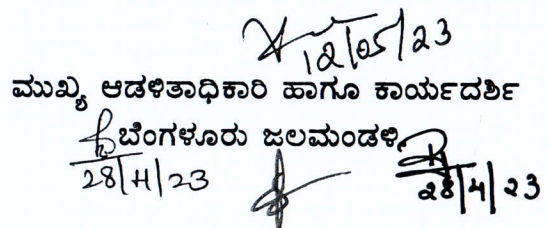 12/05/23
ಮುಖ್ಯ ಆಡಳಿತಾಧಿಕಾರಿ ಹಾಗೂ ಕಾರ್ಯದರ್ಶಿ
ಬೆಂಗಳೂರು ಜಲಮಂಡಳಿ.
28/4/23
28/4/23